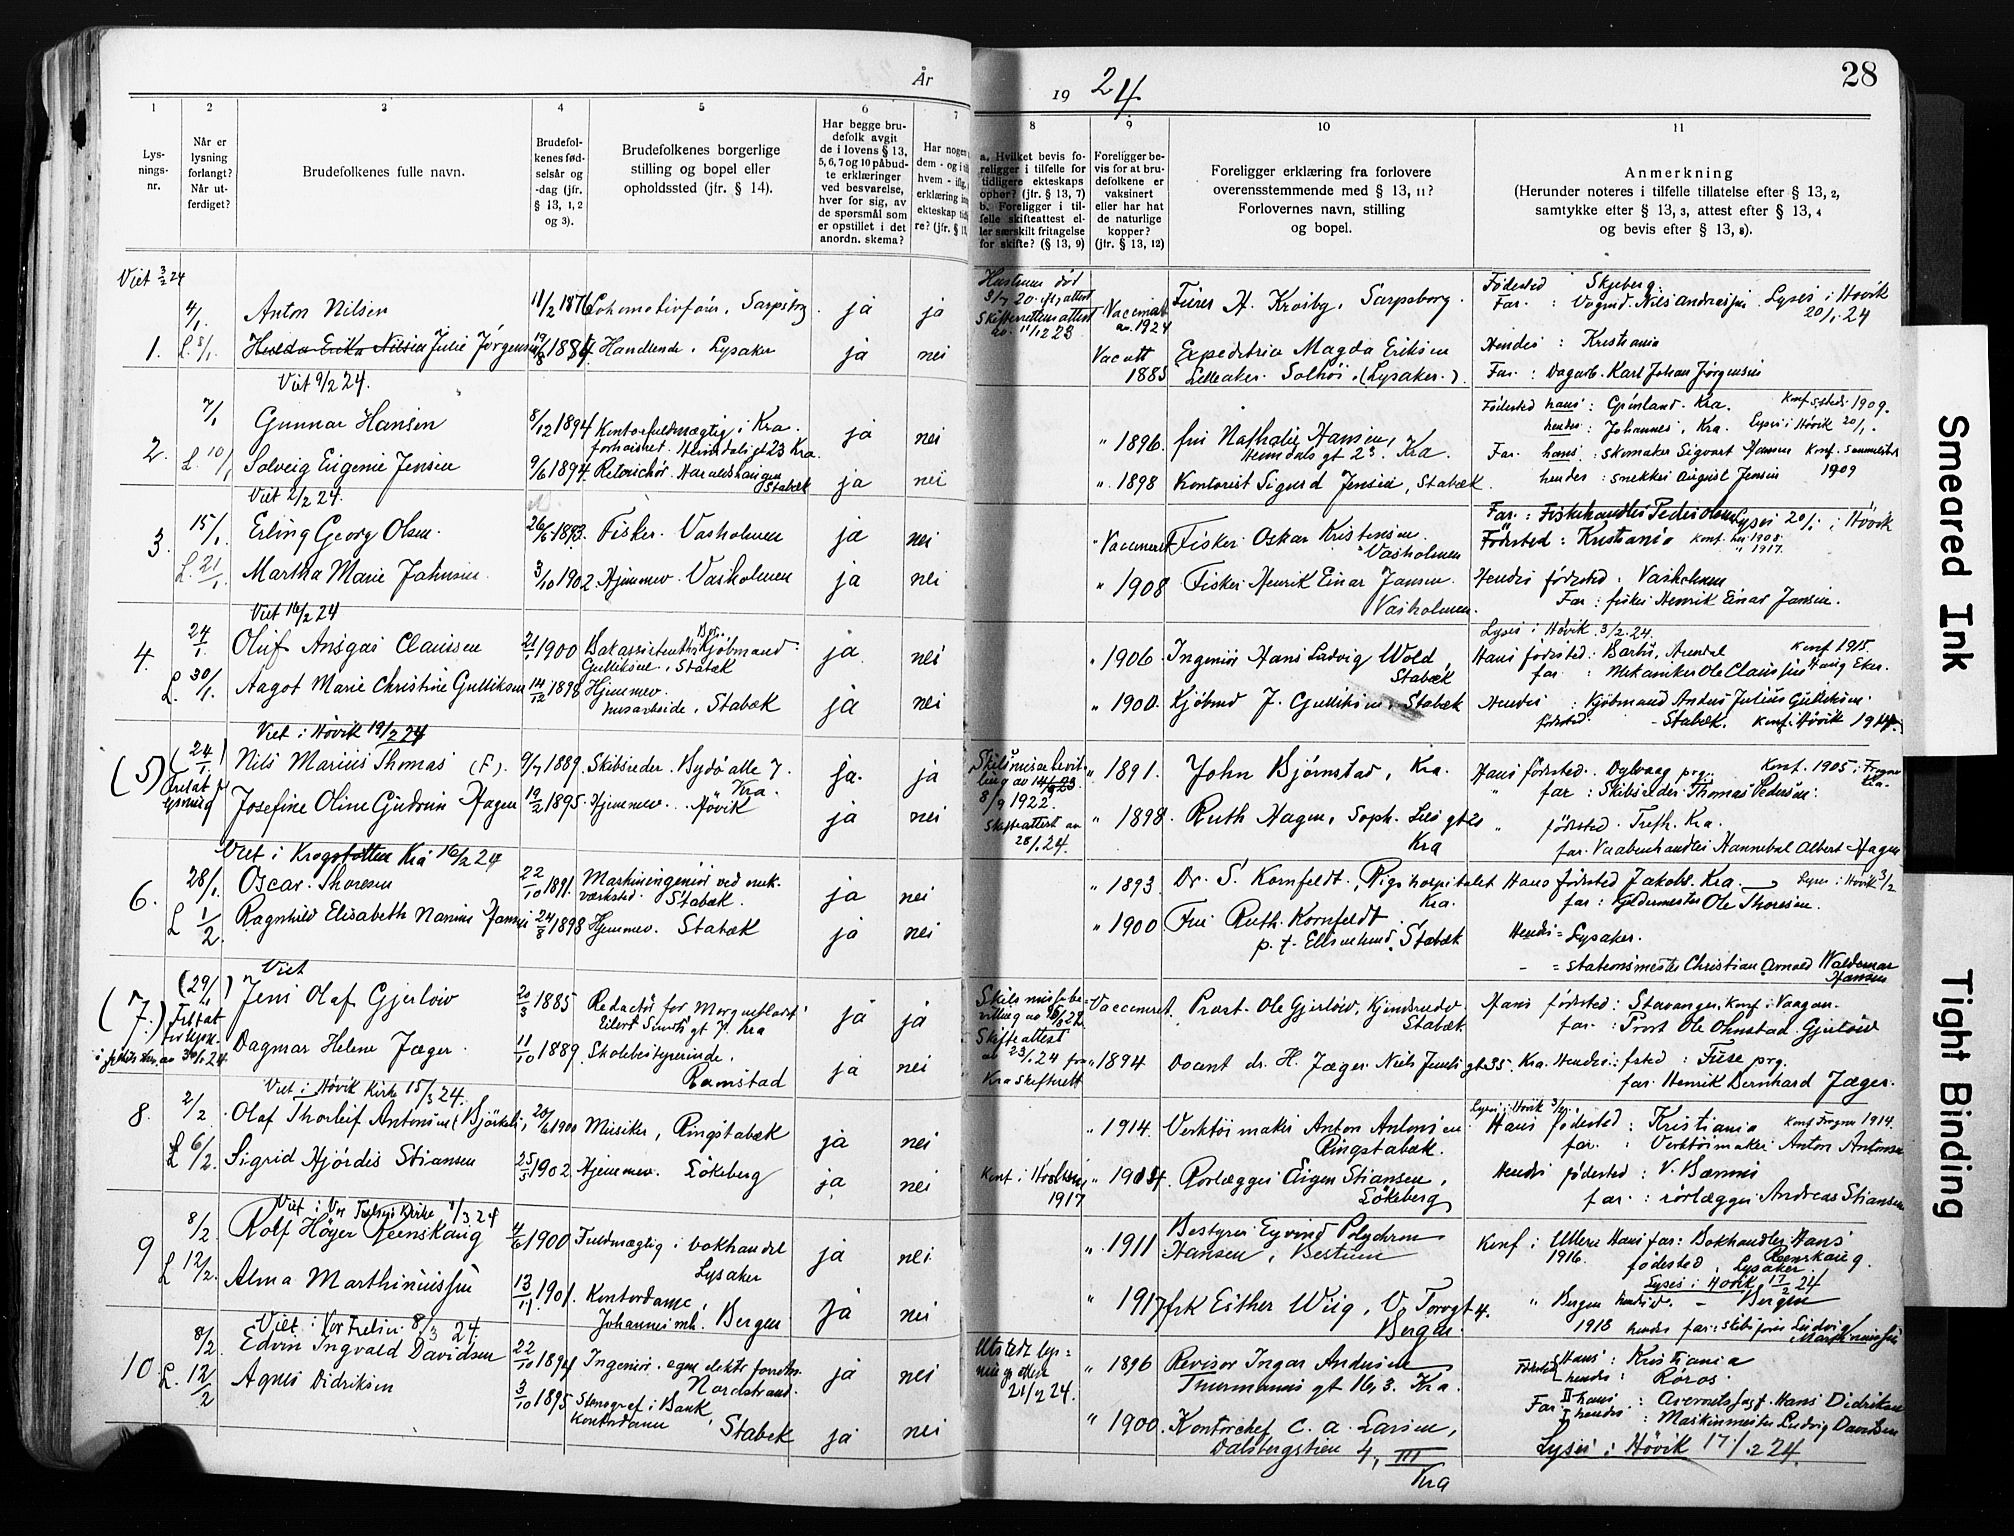 År
19 24
28
1
2
3
4
5
6
7
8
9
10
11
Lys-
nings-
nr.
Når er
lysning
forlangt?
Når ut-
ferdiget?
Brudefolkenes fulle navn.
Brudefol-
kenes fød-
selsår og
-dag (jfr.
§ 13, 1, 2
og 3).
Brudefolkenes borgerlige
stilling og bopel eller
opholdssted (jfr. § 14).
Har begge bru-
defolk avgit
de i lovens § 13,
5, 6, 7 og 10 påbud-
te erklæringer
ved besvarelse,
hver for sig, av
de spørsmål som
er opstillet i det
anordn. skema?
Har nogen
dem - og i
hvem - iflg.
erklæring
ekteskap
re? (jfr. §
a. Hvilket bevis fo-
religger i tilfelle for
tidligere ekteskaps
ophør? (jfr. § 13, 7)
b. Foreligger i til-
felle skifteattest el-
ler særskilt fritagelse
for skifte? (§ 13, 9)
Foreligger be-
vis for at bru-
defolkene er
vaksinert
eller har hat
de naturlige
kopper?
(jfr. § 13, 12)
Foreligger erklæring fra forlovere
overensstemmende med § 13, 11?
Forlovernes navn, stilling
og bopel.
Anmerkning
(Herunder noteres i tilfelle tillatelse efter § 13, 2,
samtykke efter § 13, 3, attest efter § 13, 4
og bevis efter § 13, 8).
Viet 3/2 24
4/1. Anton Nilsen 11/2 1876 Lokomotivfører, Sarpsborg. ja ja Vaccinert av. 1924 Fører H. Krosby, Sarpsborg. Fødested Skjeberg.
Far. : Vognmd. Nils Andreassen Lyses i Høvik 20/1. 24
1. L. 8/1 Hulda Erika Nilsen Julie Jørgensen 19/8 1884 Handlende, Lysaker ja nei Vacatt 1885 Expeditrice Magda Eriksen Hendes : Kristiania
Lilleaker. Solhøi. (Lysaker.) Far. : Dagarb. Karl Johan Jørgensen
Viet 9/2 24.
7/1 Gunnar Hansen 8/12 1894 Kontorfuldmægtig i Kra. ja nei " 1896. fru Nathalie Hansen, Fødested hans : Grønland. Kra. 1909.
Heimdals gt 23 Kra. Heimdals gt 23. Kra. hendes : Johannes, Kra. Lyses i Høvik 20/1.
2. L. 10/1 Solveig Eugenie Jensen 9/6 1894. Haraldshaugen Stabæk ja nei " 1898 Kontorist Sigurd Jensen, Stabæk. Far. hans : skomaker Sigvart Hansen
hendes : snekker August Jensen 1909
Viet 2/2 24.
3. 15/1. Erling Georg Olsen. 26/6 1893. Fisker. Vasholmen ja nei " Vaccineret Fisker Oskar Kristensen. Vasholmen Far. : Fiskehandler Peder Olsen Lyses 20/1. i Høvik
Fødested : Kristiania
L. 21/1. Martha Marie Jahnsen. 3/10 1902. Hjemmev. Vasholmen ja nei " 1908 Fisker Henrik Einar Jansen. Vasholmen. Hendes fødested : Vasholmen
Far : fisker Henrik Einar Jansen.
Viet 16/2 24
4. 24/1 Oluf Ansgar Claussen 21/1 1900 Kjøbmand Gulliksen, Stabæk ja. nei " 1906. Ingeniør Hans Ludvig Wold, Stabæk Lyses i Høvik. 3/2. 24.
Hans fødested : Arendal Konf 1915.
far : Mekaniker Ole Claussen
L. 30/1. Aagot Marie Christine Gulliksen 14/12 1898 Hjemmev. husarbeide, Stabæk ja nei " 1900. Kjøbmd J. Gulliksen, Stabæk Hendes : Kjøbmand Anders Julius Gulliksen
fødested - Stabæk. Konf. i Høvik 1914.
Viet i Høvik 19/2 24
(5) (24/1.) Nils Marius Thomas (F). 9/7 1889. Skibsreder. Bygdø alle 7. Kra. ja. ja " 1891. John Bjørnstad, Kra. Hans fødested. Dybvaag prg. Konf. 1905 i Frogner Kra.
8/9 1922. " far : Skibsreder Thomas Pedersen.
lysning Josefine Oline Gudrun Hagen 19/2 1895. Hjemmev. Høvik ja nei Skifteattest av 28/1. 24. " 1898. Ruth Hagen, Soph. Lies gt 20 Kra " fødested. Trefh. Kra.
far. Vaabenhandler Hannebal Albert Hagen
Viet i Kra 16/2 24
6. 28/1. Oscar Thoresen 22/10 1891. Maskiningeniør ved mek. værksted. Stabæk. ja nei " 1893. Dr. S. Kornfeldt, Rigshospitalet Kra. Hans fødested Jakobs. Kra. Lyses i Høvik 3/2
far : Kjeldermester Ole Thoresen.
L 1/2. Ragnhild Elisabeth Nanine Hansen 24/8 1898 Hjemmev. Stabæk ja nei " 1900 Fru Ruth Kornfeldt. p. t. Stabæk Hendes = Lysaker.
- = Stationsmester Christian Arnold Waldemar Hansen
Viet
(7.) (29/1) Jens Olaf Gjerløw 20/3 1885 Redactør for Morgenbladet Eilert Sundts gt 7. Kra ja ja Skilsmissebevilling Vaccineret. Prost. Ole Gjerløw, Stabæk Hans fødested : Stavanger. Konf. i Vaagan.
far. : Prost Ole Ohnstad Gjerløw
av 30/1. 24. Dagmar Helene Jæger. 11/10 1889. Skolebestyrerinde, Ramstad ja nei Skifteattest av 23/1. 24 fra Kra skifterett " 1894 Docent dr. H. Jæger. Niels Juels gt 35. Kra. Hendes : fsted : Fuse prg.
far. Henrik Bernhard Jæger.
Viet i Høvik Kirke 15/3 24.
8. 2/2 Olaf Thorleif Antonsen (Bjørkeli), 20/6 1900 Musiker, Ringstabæk ja nei " 1914. Verktøimaker Anton Antonsen Ringstabæk. Lyses i Høvik
Hans fødested : Kristiania Konf Frogner 1914.
far. : Verktøimaker Anton Antonsen
L 6/2. Sigrid Hjørdis Stiansen 25/3 1902. Hjemmev. Løkeberg ja nei Konf. i 1917 " 1904. Rørlægger Sigen Stiansen, Løkeberg Hendes fødested : V. Bærum
far. : rørlægger Andreas Stiansen
Viet i Vor Frelsers Kirke 1/3. 24
9 8/2. Rolf Høyer Reenskaug 4/6 1900 Fuldmægtig i bokhandel Lysaker ja nei " 1911 Bestyrer Eyvind Polychron Hansen, Bestum Konf. i Ullern 1916. Hans far : Bokhandler Hans Reenskaug.
fødested. Lysaker.
Lyses i Høvik 17/2 24
L 12/2. Alma Marthinussen 13/11. 1901. Kontordame, Johannes mh. Bergen ja nei " 1917 frk Esther Wiig, V. Torvgt 4. Bergen. " Bergen 1918 hendes. - Bergen
hendes far : skibsfører Ludvig Marthinussen
Viet i Vor Frelser 8/3 24.
10 8/2. Edvin Ingvald Davidsen 22/10 1894 Ingeniør. egen elektr forretn. Nordstrand. ja nei " 1896 Revisor Ingar Andersen Thurmanns gt 16, 3. Kra. Fødested hans : Kristiania
hendes : Røros
L. 12/2 Agnes Didriksen 3/10 1895 Stenograf i Bank Kontordame, Stabæk ja nei " 1900. Kontorchef C. A. Larsen, Dalsbergstien 4, III Kra Far II hans : Hans Didriksen
I hendes : Maskinmester Ludvig Davidsen
Lyses i Høvik 17/2 24.
Smeared Ink
Tight Binding